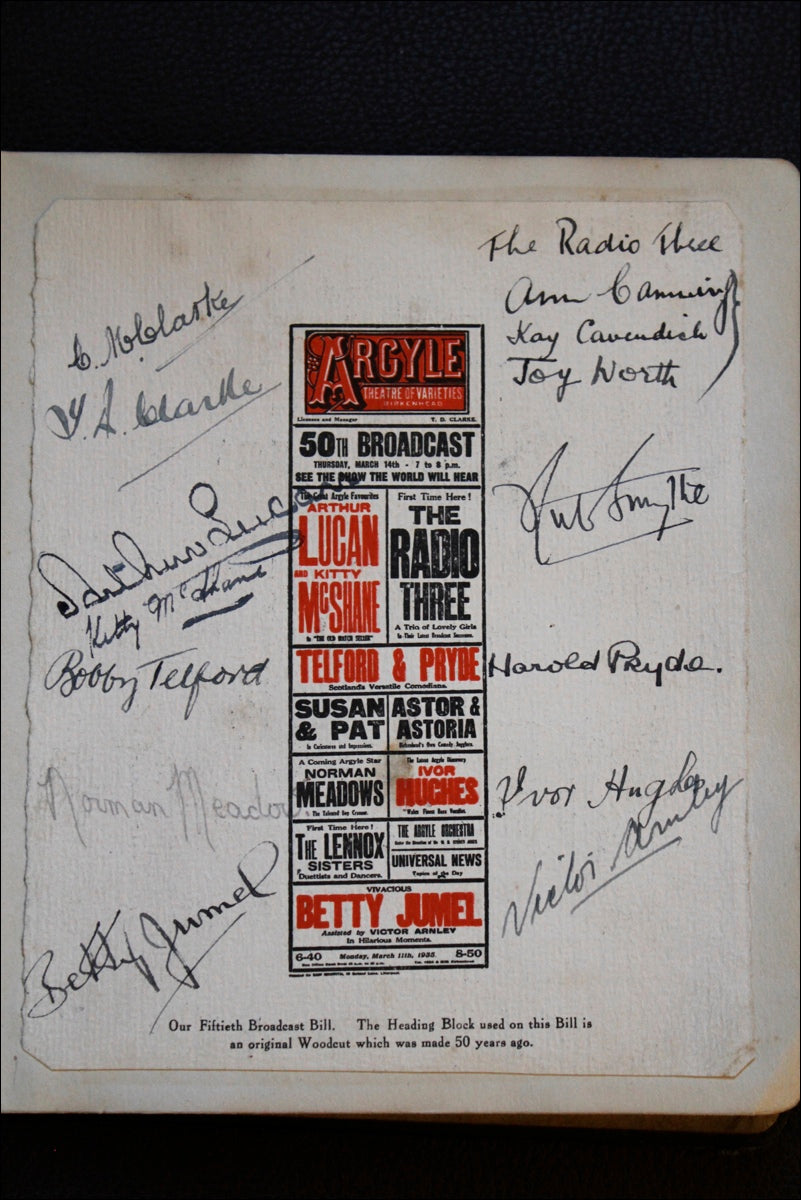 The Radio Three
Ann Canning
Kay Cavendish
Joy Worth
C. M. Clarke
T. A. Clarke
Arthur Lucan
Kitty McShane
Bobby Telford
Harold Pryde.
Norman Meadows
Ivor Hughes
Victor Arnley
Betty Jumel
ARGYLE
THEATRE OF VARIETIES
BIRKENHEAD
Licensee and Manager T. D. CLARKE.
50TH BROADCAST
THURSDAY, MARCH 14th - 7 to 8 p.m.
SEE THE SHOW THE WORLD WILL HEAR
The Great Argyle Favourites
ARTHUR
LUCAN
AND KITTY
McSHANE
In "THE OLD MATCH SELLER"
First Time Here!
THE
RADIO
THREE
A Trio of Lovely Girls
In Their Latest Broadcast Successes.
TELFORD & PRYDE
Scotland's Versatile Comedians.
SUSAN
& PAT
In Caricatures and Impressions.
ASTOR &
ASTORIA
Birkenhead's Own Comedy Jugglers.
A Coming Argyle Star
NORMAN
MEADOWS
The Talented Boy Crooner.
The Latest Argyle Discovery
IVOR
HUGHES
First Time Here!
THE LENNOX
SISTERS
Duettists and Dancers.
THE ARGYLE ORCHESTRA
UNIVERSAL NEWS
Topics of the Day
VIVACIOUS
BETTY JUMEL
Assisted by VICTOR ARNLEY
In Hilarious Moments.
6-40 Monday, March 11th, 1935. 8-50
Our Fiftieth Broadcast Bill. The Heading Block used on this Bill is
an original Woodcut which was made 50 years ago.